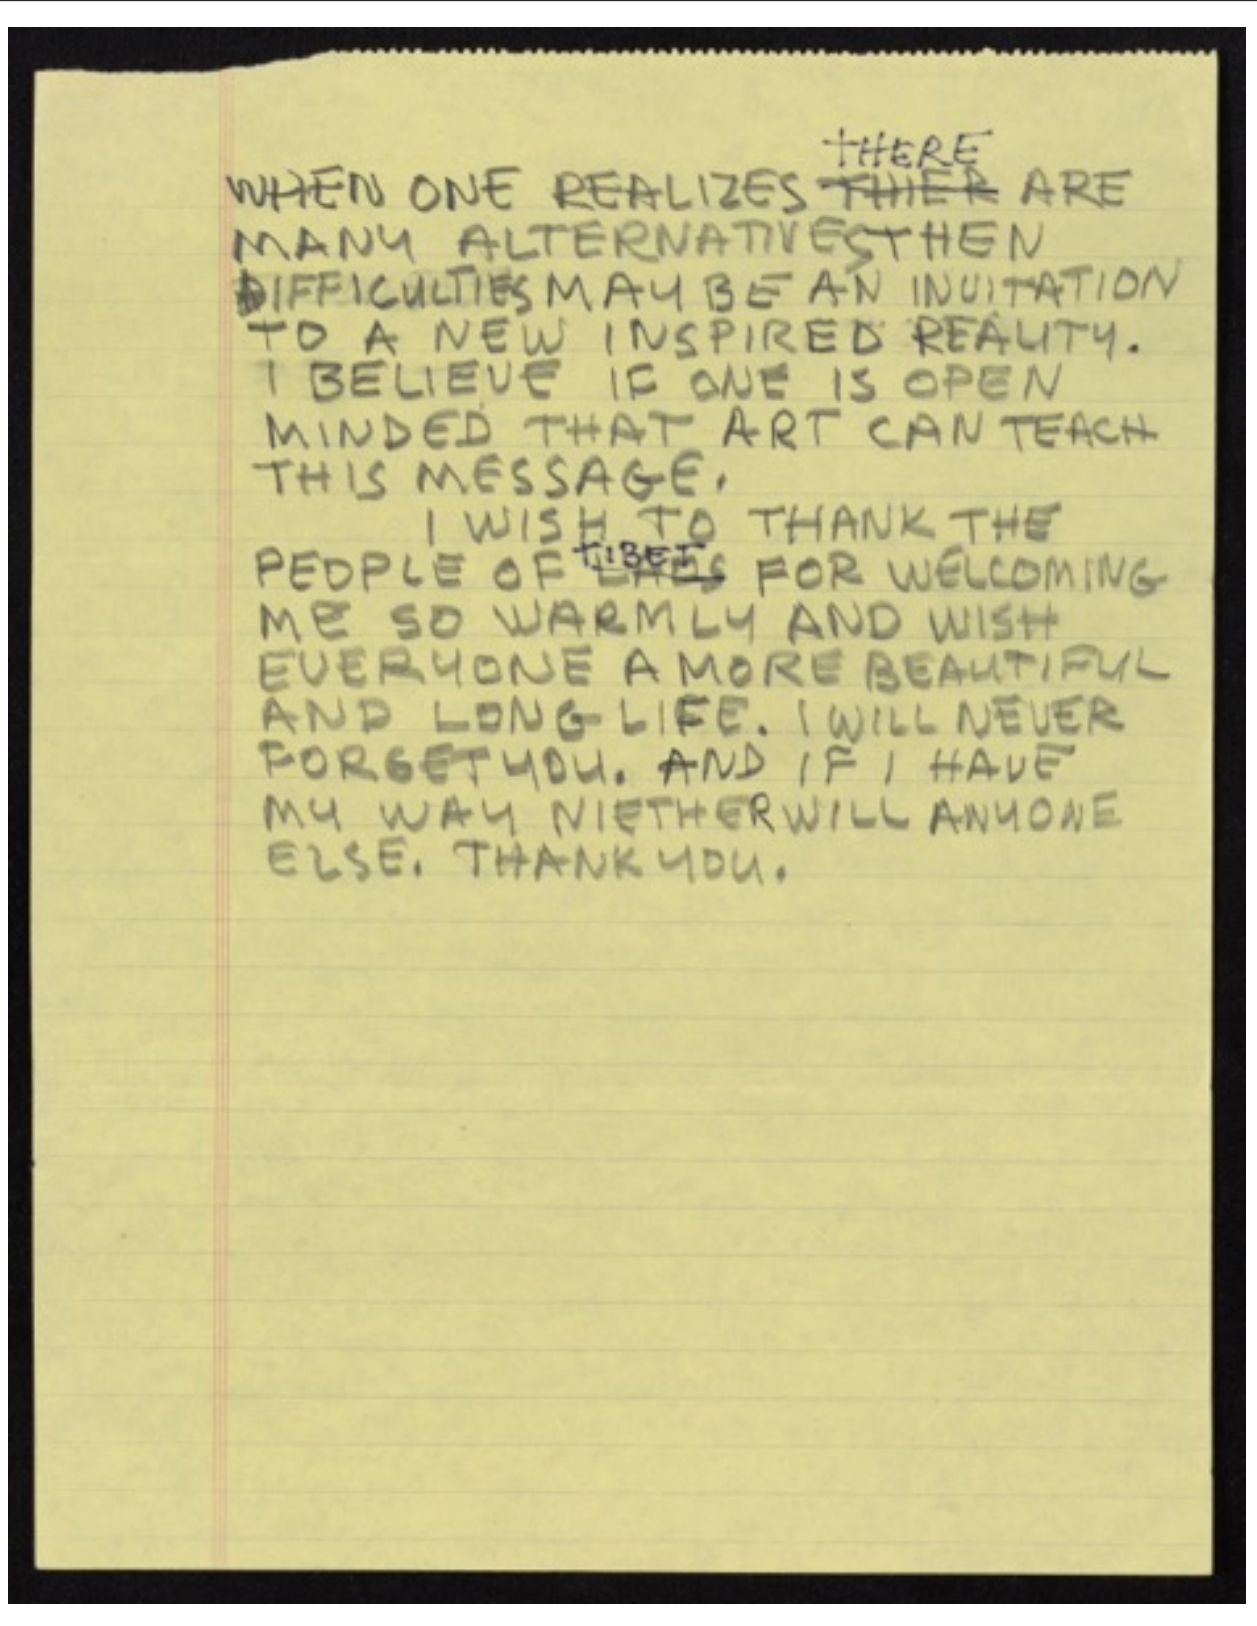 THERE
WHEN ONE REALIZES THIER ARE
MANY ALTERNATIVES, THEN
DIFFICULTIES MAY BE AN INVITATION
TO A NEW INSPIRED REALITY.
I BELIEVE IF ONE IS OPEN
MINDED THAT ART CAN TEACH
THIS MESSAGE.
I WISH TO THANK THE
TIBET
PEOPLE OF LAOS FOR WELCOMING
ME SO WARMLY AND WISH
EVERYONE A MORE BEAUTIFUL
AND LONG LIFE. I WILL NEVER
FORGET YOU. AND IF I HAVE
MY WAY NIETHER WILL ANYONE
ELSE. THANK YOU.